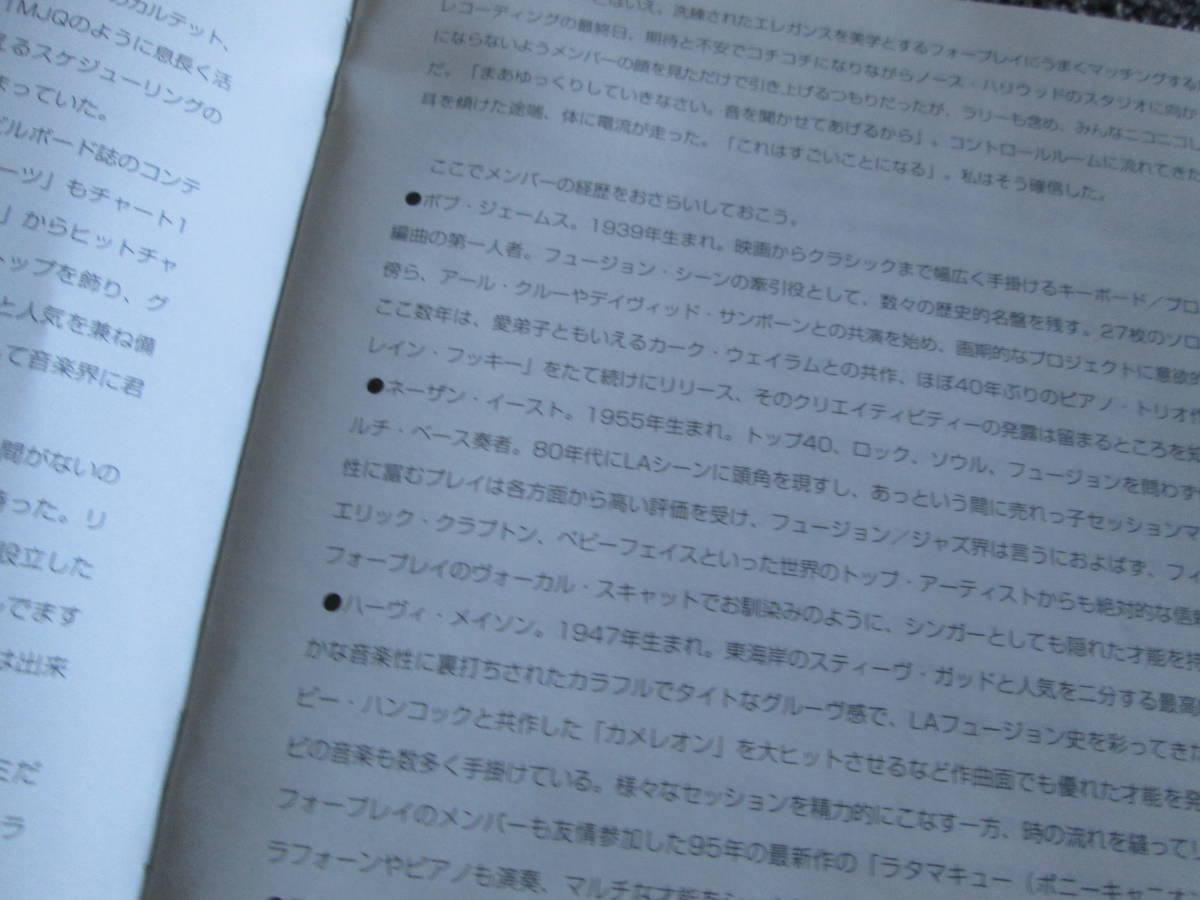 のカルテット、
「MJQのように息長く活
えるスケジューリングの
まっていた。
ビルボード誌のコンテ
ーツ」もチャート1
」からヒットチャ
トップを飾り、グ
と人気を兼ね備
って音楽界に君
間がないの
った。リ
設立した
でます
は出来
ミだ
ラ
とはいえ、洗練されたエレガンスを美学とするフォープレイにうまくマッチングする
レコーディングの最終日、期待と不安でコチコチになりながらノース・ハリウッドのスタジオに向か
にならないようメンバーの顔を見ただけで引き上げるつもりだったが、ラリーも含め、みんなニコニコし
だ。「まあゆっくりしていきなさい。音を聞かせてあげるから」。コントロールルームに流れてきた
耳を傾けた途端、体に電流が走った。「これはすごいことになる」。私はそう確信した。
ここでメンバーの経歴をおさらいしておこう。
●ボブ・ジェームス。1939年生まれ。映画からクラシックまで幅広く手掛けるキーボード/プロ
編曲の第一人者。フュージョン・シーンの牽引役として、数々の歴史的名盤を残す。27枚のソロ
傍ら、アール・クルーやデイヴィッド・サンボーンとの共演を始め、画期的なプロジェクトに意欲的
ここ数年は、愛弟子ともいえるカーク・ウェイラムとの共作、ほぼ40年ぶりのピアノ・トリオ作
レイン・フッキー」をたて続けにリリース、そのクリエイティビティーの発露は留まるところを知
●ネーザン・イースト。1955年生まれ。トップ40、ロック、ソウル、フュージョンを問わず
ルチ・ベース奏者。80年代にLAシーンに頭角を現すし、あっという間に売れっ子セッションマ
性に富むプレイは各方面から高い評価を受け、フュージョン/ジャズ界は言うにおよばず、フィ
エリック・クラプトン、ベビーフェイスといった世界のトップ・アーティストからも絶対的な信頼
フォープレイのヴォーカル・スキャットでお馴染みのように、シンガーとしても隠れた才能を持
●ハーヴィ・メイソン。1947年生まれ。東海岸のスティーヴ・ガッドと人気を二分する最高
かな音楽性に裏打ちされたカラフルでタイトなグルーヴ感で、LAフュージョン史を彩ってきた
ビー・ハンコックと共作した「カメレオン」を大ヒットさせるなど作曲面でも優れた才能を発
ビの音楽も数多く手掛けている。様々なセッションを精力的にこなす一方、時の流れを縫ってリ
フォープレイのメンバーも友情参加した95年の最新作の「ラタマキュー(ポニーキャニオン
ラフォーンやピアノも演奏、マルチな才能を